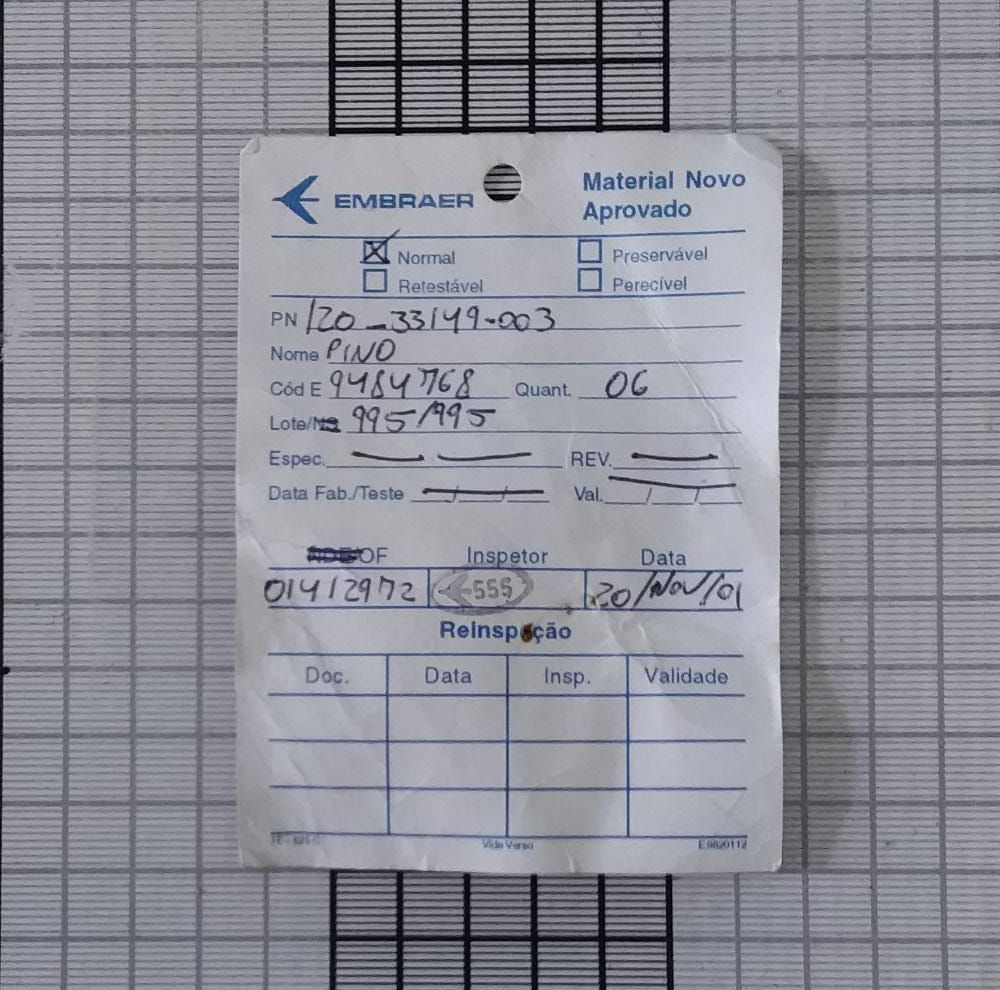 EMBRAER
Material Novo
Aprovado
Normal
Preservável
Retestável
Perecível
PN 120-33149-003
Nome PINO
Cód E 9484768 Quant. 06
Lote/ 995/995
Espec. REV.
Data Fab./Teste Val.
/OF Inspetor Data
01412972 555 20/NOV/01
Reinspeção
Doc. Data Insp. Validade
Vide Verso E9820112